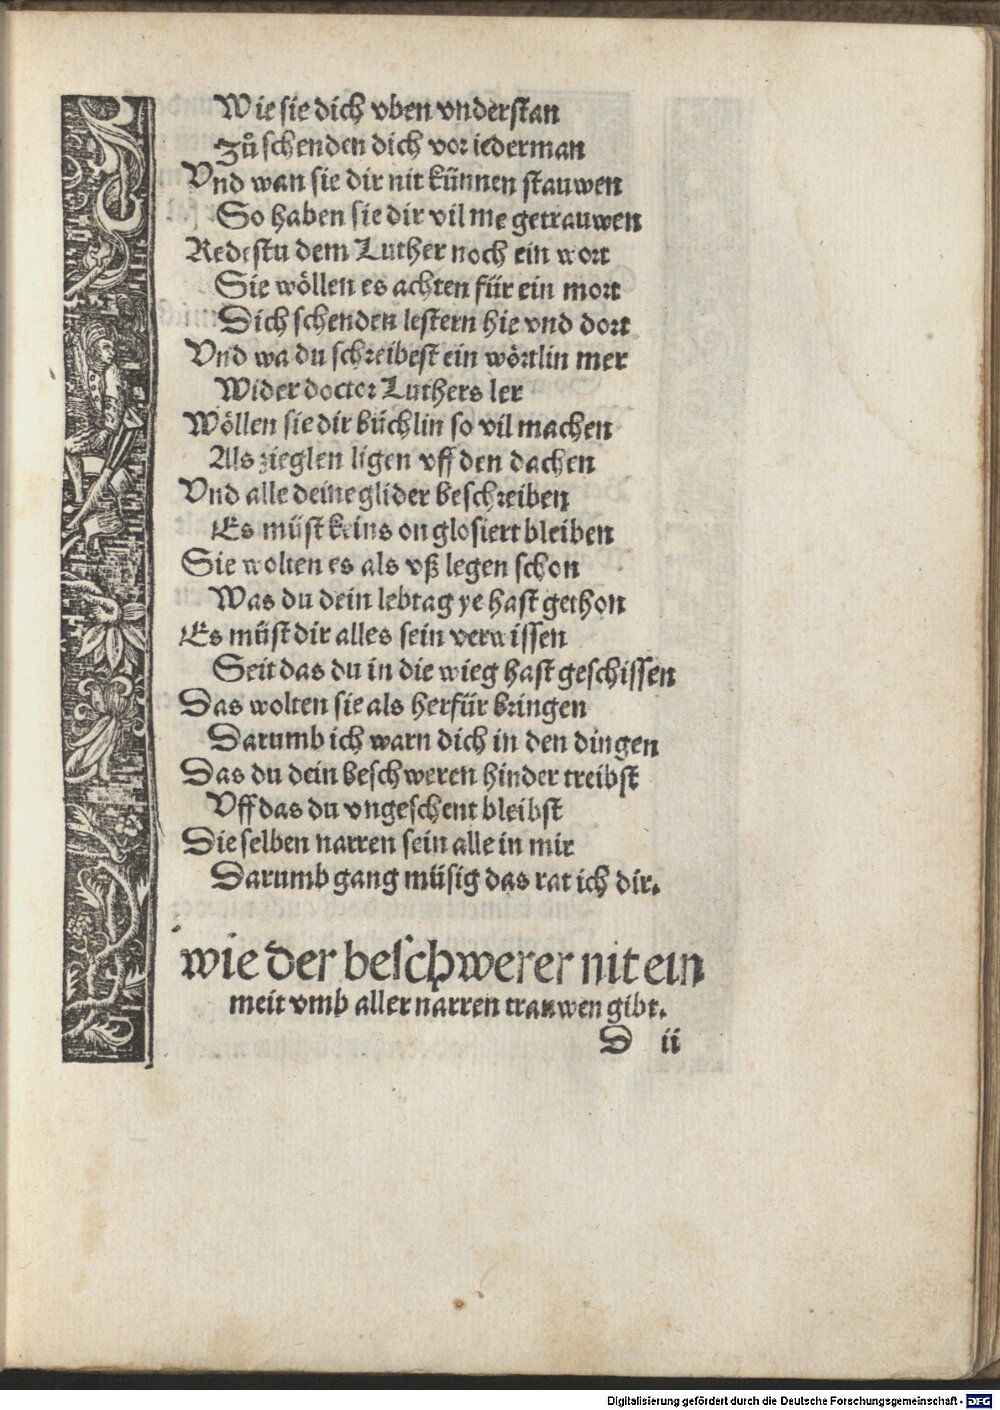 Wie sie dich vben vnderstan
Zů schenden dich vor iederman
Vnd wan sie dir nit künnen stauwen
So haben sie dir vil me getrauwen
Redestu dem Luther noch ein wort
Sie wöllen es achten für ein mort
Dich schenden lestern hie vnd dort
Vnd wa du schreibest ein wörtlin mer
Wider doctor Luthers ler
Wöllen sie dir büchlin so vil machen
Als zieglen ligen vff den dachen
Vnd alle deine glider beschreiben
Es müst keins on glosiert bleiben
Sie wolten es als vß legen schon
Was du dein lebtag ye hast gethon
Es müst dir alles sein verwissen
Seit das du in die wieg hast geschissen
Das wolten sie als herfür bringen
Darumb ich warn dich in den dingen
Das du dein beschweren hinder treibst
Vff das du vngeschent bleibst
Die selben narren sein alle in mir
Darumb gang müsig das rat ich dir.
wie der beschwerer nit ein
meit vmb aller narren trauwen gibt.
D ii
Digitalisierung gefördert durch die Deutsche Forschungsgemeinschaft - DFG